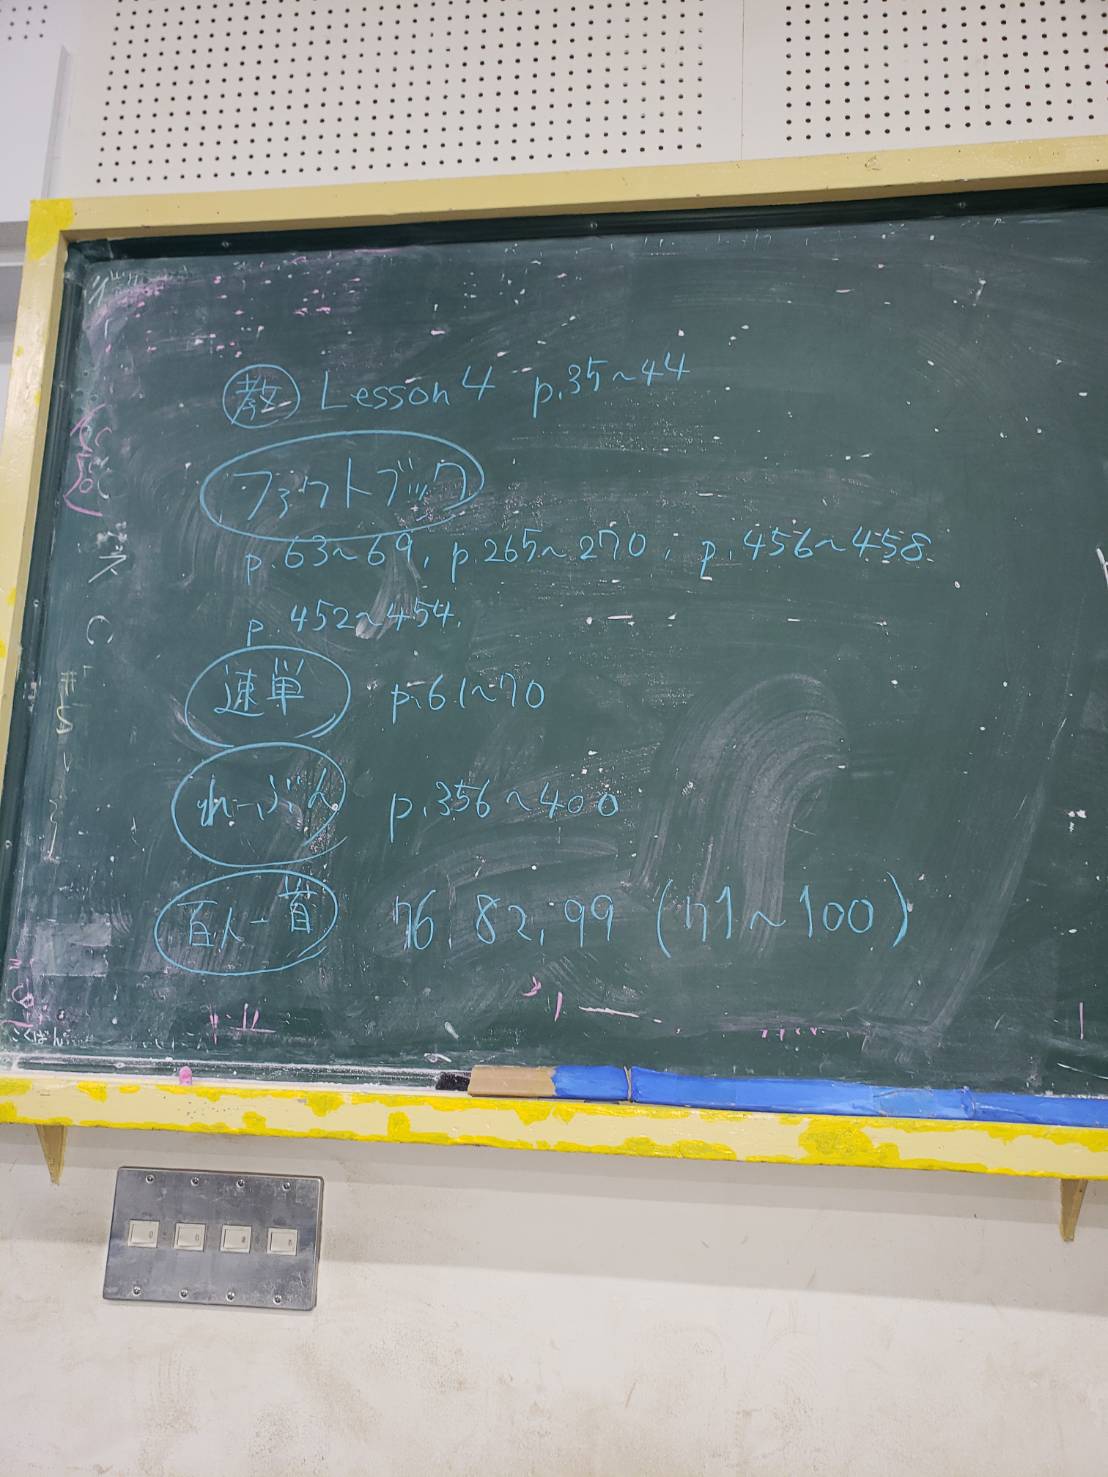 教 Lesson 4 p.35~44
ファクトブック
p.63~69, p.265~270, p.456~458.
p.452~454.
速単 p.61~70
れーぶん p.356~400
百人一首 76, 82, 99 (71~100)